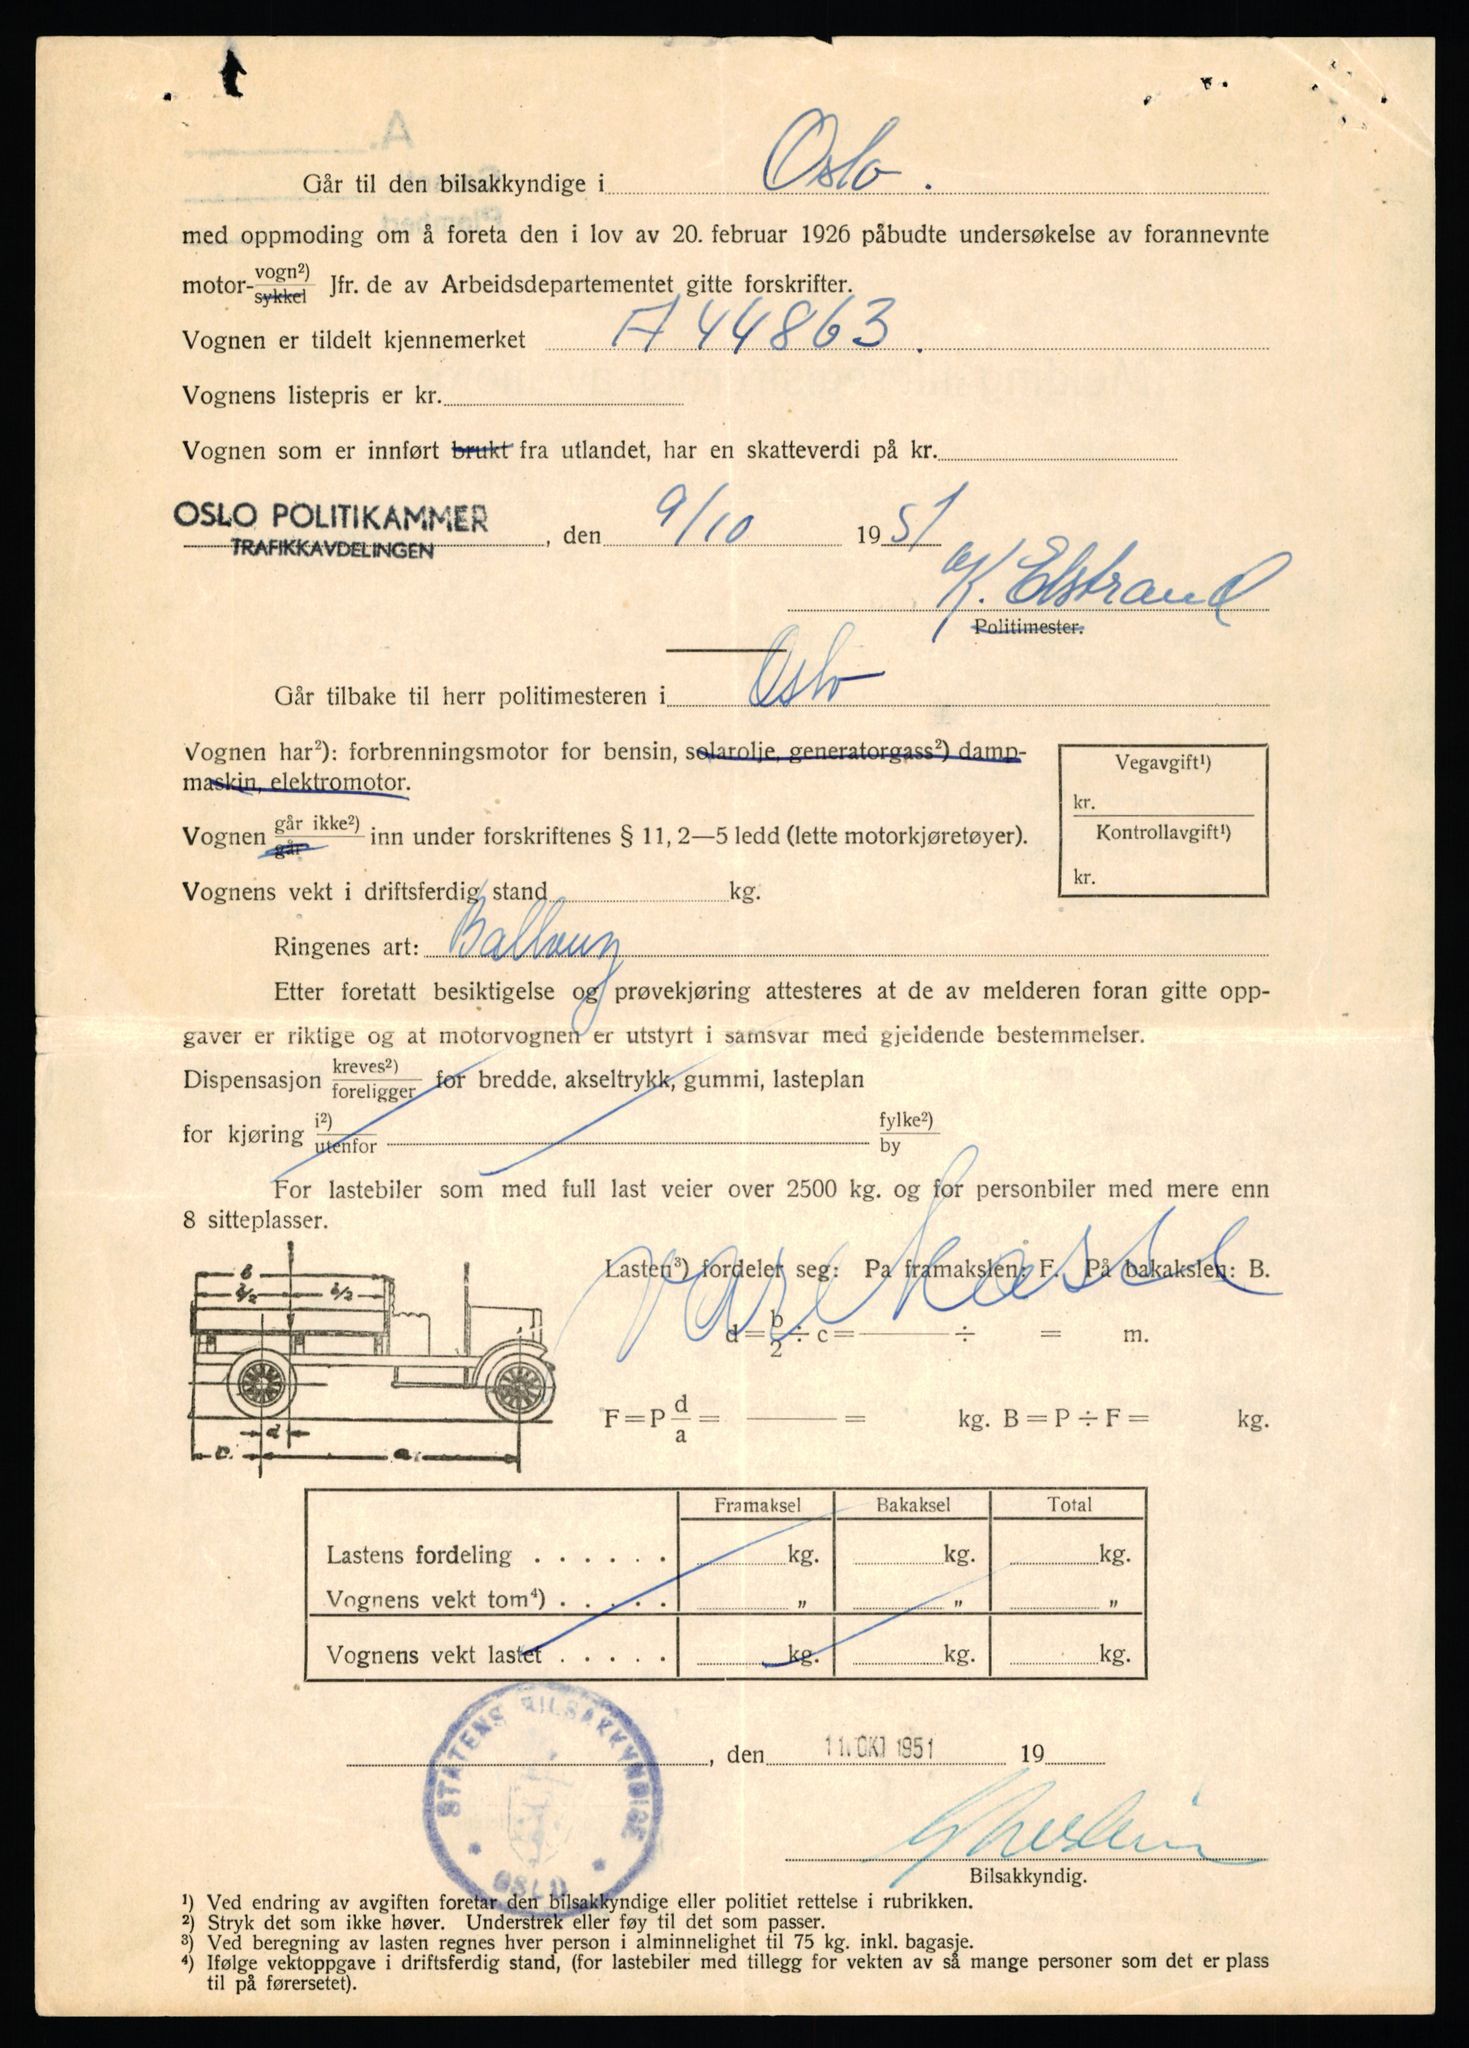 Går til den bilsakkyndige i Oslo.
med oppmoding om å foreta den i lov av 20. februar 1926 påbudte undersøkelse av forannevnte
motor- vogn²) / sykkel Jfr. de av Arbeidsdepartementet gitte forskrifter.
Vognen er tildelt kjennemerket A 44863.
Vognens listepris er kr.
Vognen som er innført brukt fra utlandet, har en skatteverdi på kr.
OSLO POLITIKAMMER
TRAFIKKAVDELINGEN
, den 9/10 1951
K. Elstrand
Politimester.
Går tilbake til herr politimesteren i Oslo
Vognen har²): forbrenningsmotor for bensin, solarolje, generatorgass²) damp-
maskin, elektromotor.
Vegavgift¹)
kr.
Kontrollavgift¹)
kr.
Vognen går ikke²) / går inn under forskriftenes § 11, 2—5 ledd (lette motorkjøretøyer).
Vognens vekt i driftsferdig stand kg.
Ringenes art: Ballong
Etter foretatt besiktigelse og prøvekjøring attesteres at de av melderen foran gitte opp-
gaver er riktige og at motorvognen er utstyrt i samsvar med gjeldende bestemmelser.
Dispensasjon kreves²) / foreligger for bredde, akseltrykk, gummi, lasteplan
for kjøring i²) / utenfor fylke²) / by
For lastebiler som med full last veier over 2500 kg. og for personbiler med mere enn
8 sitteplasser.
varekasse
Lasten³) fordeler seg: Pa framakslen: F. På bakakslen: B.
d = b/2 ÷ c = ÷ = m.
F = P d/a = = kg. B = P ÷ F = kg.
b
b/2 b/2
d
c. a.
Framaksel Bakaksel Total
Lastens fordeling . . . . . . kg. kg. kg.
Vognens vekt tom⁴) . . . . . „ „ „
Vognens vekt lastet . . . . . kg. kg. kg.
STATENS BILSAKKYNDIGE
OSLO
, den 11. OKT 1951 19
Bilsakkyndig.
¹) Ved endring av avgiften foretar den bilsakkyndige eller politiet rettelse i rubrikken.
²) Stryk det som ikke høver. Understrek eller føy til det som passer.
³) Ved beregning av lasten regnes hver person i alminnelighet til 75 kg. inkl. bagasje.
⁴) Ifølge vektoppgave i driftsferdig stand, (for lastebiler med tillegg for vekten av så mange personer som det er plass
til på førersetet).